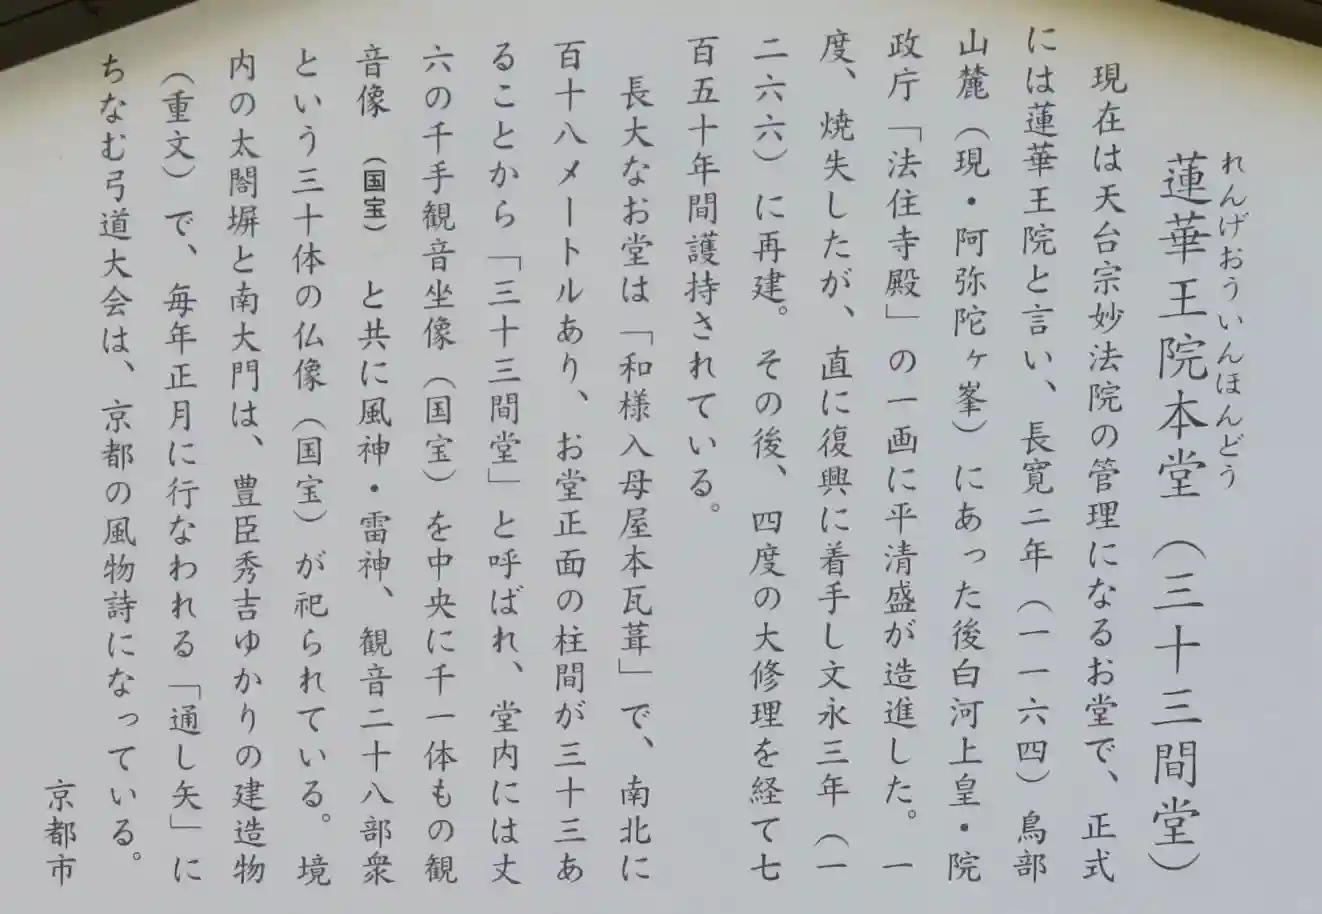 れんげおういんほんどう
蓮華王院本堂（三十三間堂）
現在は天台宗妙法院の管理になるお堂で、正式
には蓮華王院と言い、長寛二年（一一六四）鳥部
山麓（現・阿弥陀ヶ峯）にあった後白河上皇・院
政庁「法住寺殿」の一画に平清盛が造進した。一
度、焼失したが、直に復興に着手し文永三年（一
二六六）に再建。その後、四度の大修理を経て七
百五十年間護持されている。
長大なお堂は「和様入母屋本瓦葺」で、南北に
百十八メートルあり、お堂正面の柱間が三十三あ
ることから「三十三間堂」と呼ばれ、堂内には丈
六の千手観音坐像（国宝）を中央に千一体もの観
音像（国宝）と共に風神・雷神、観音二十八部衆
という三十体の仏像（国宝）が祀られている。境
内の太閤塀と南大門は、豊臣秀吉ゆかりの建造物
（重文）で、毎年正月に行なわれる「通し矢」に
ちなむ弓道大会は、京都の風物詩になっている。
京都市